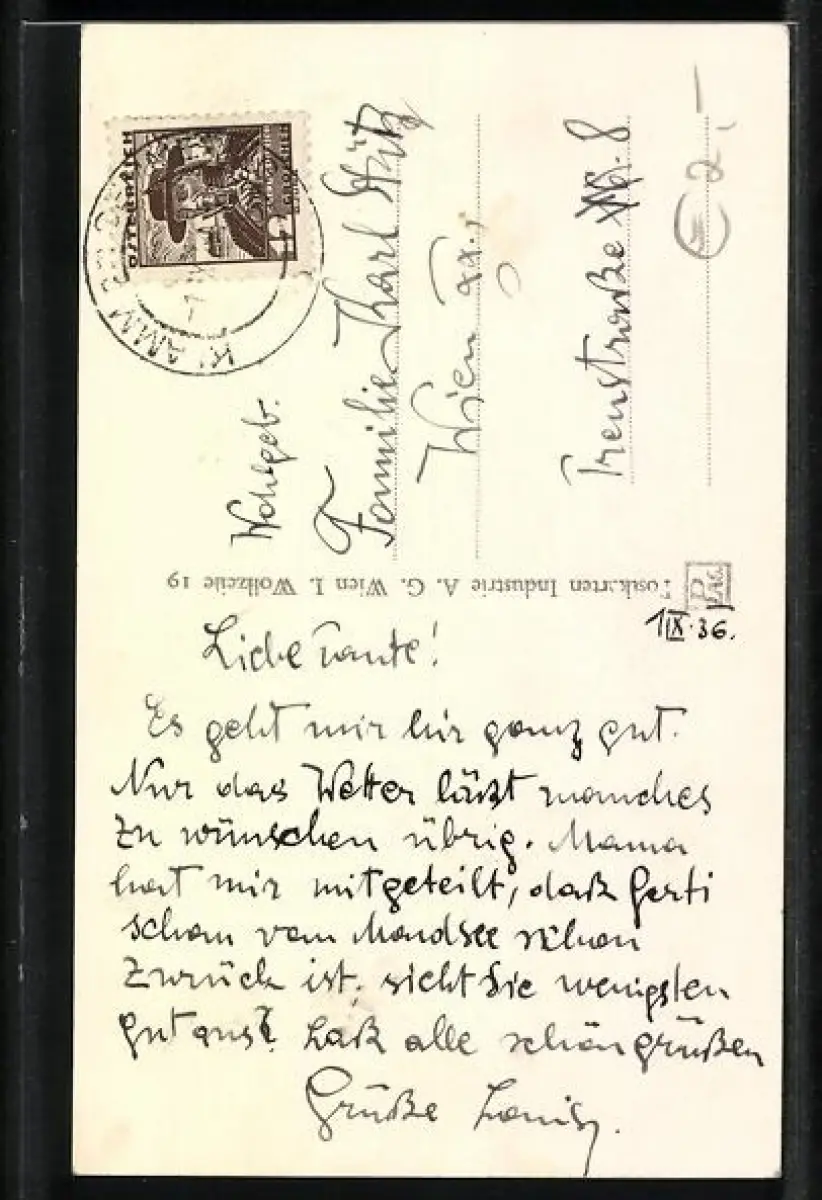 1 IX. 36.
Liebe Tante!
Es geht mir hir ganz gut.
Nur das Wetter läßt manches
zu wünschen übrig. Mama
hat mir mitgeteilt, daß Gerti
schon vom Mondsee schon
zurück ist; sieht Sie wenigsten
gut aus? Laß alle schön grüßen
Grüße
Postkarten Industrie A. G. Wien I. Wollzeile 19
ÖSTERREICH
GROSCHEN
KLAMM
Wohlgeb.
Familie Karl
Wien XX.,
8
€ 2,-